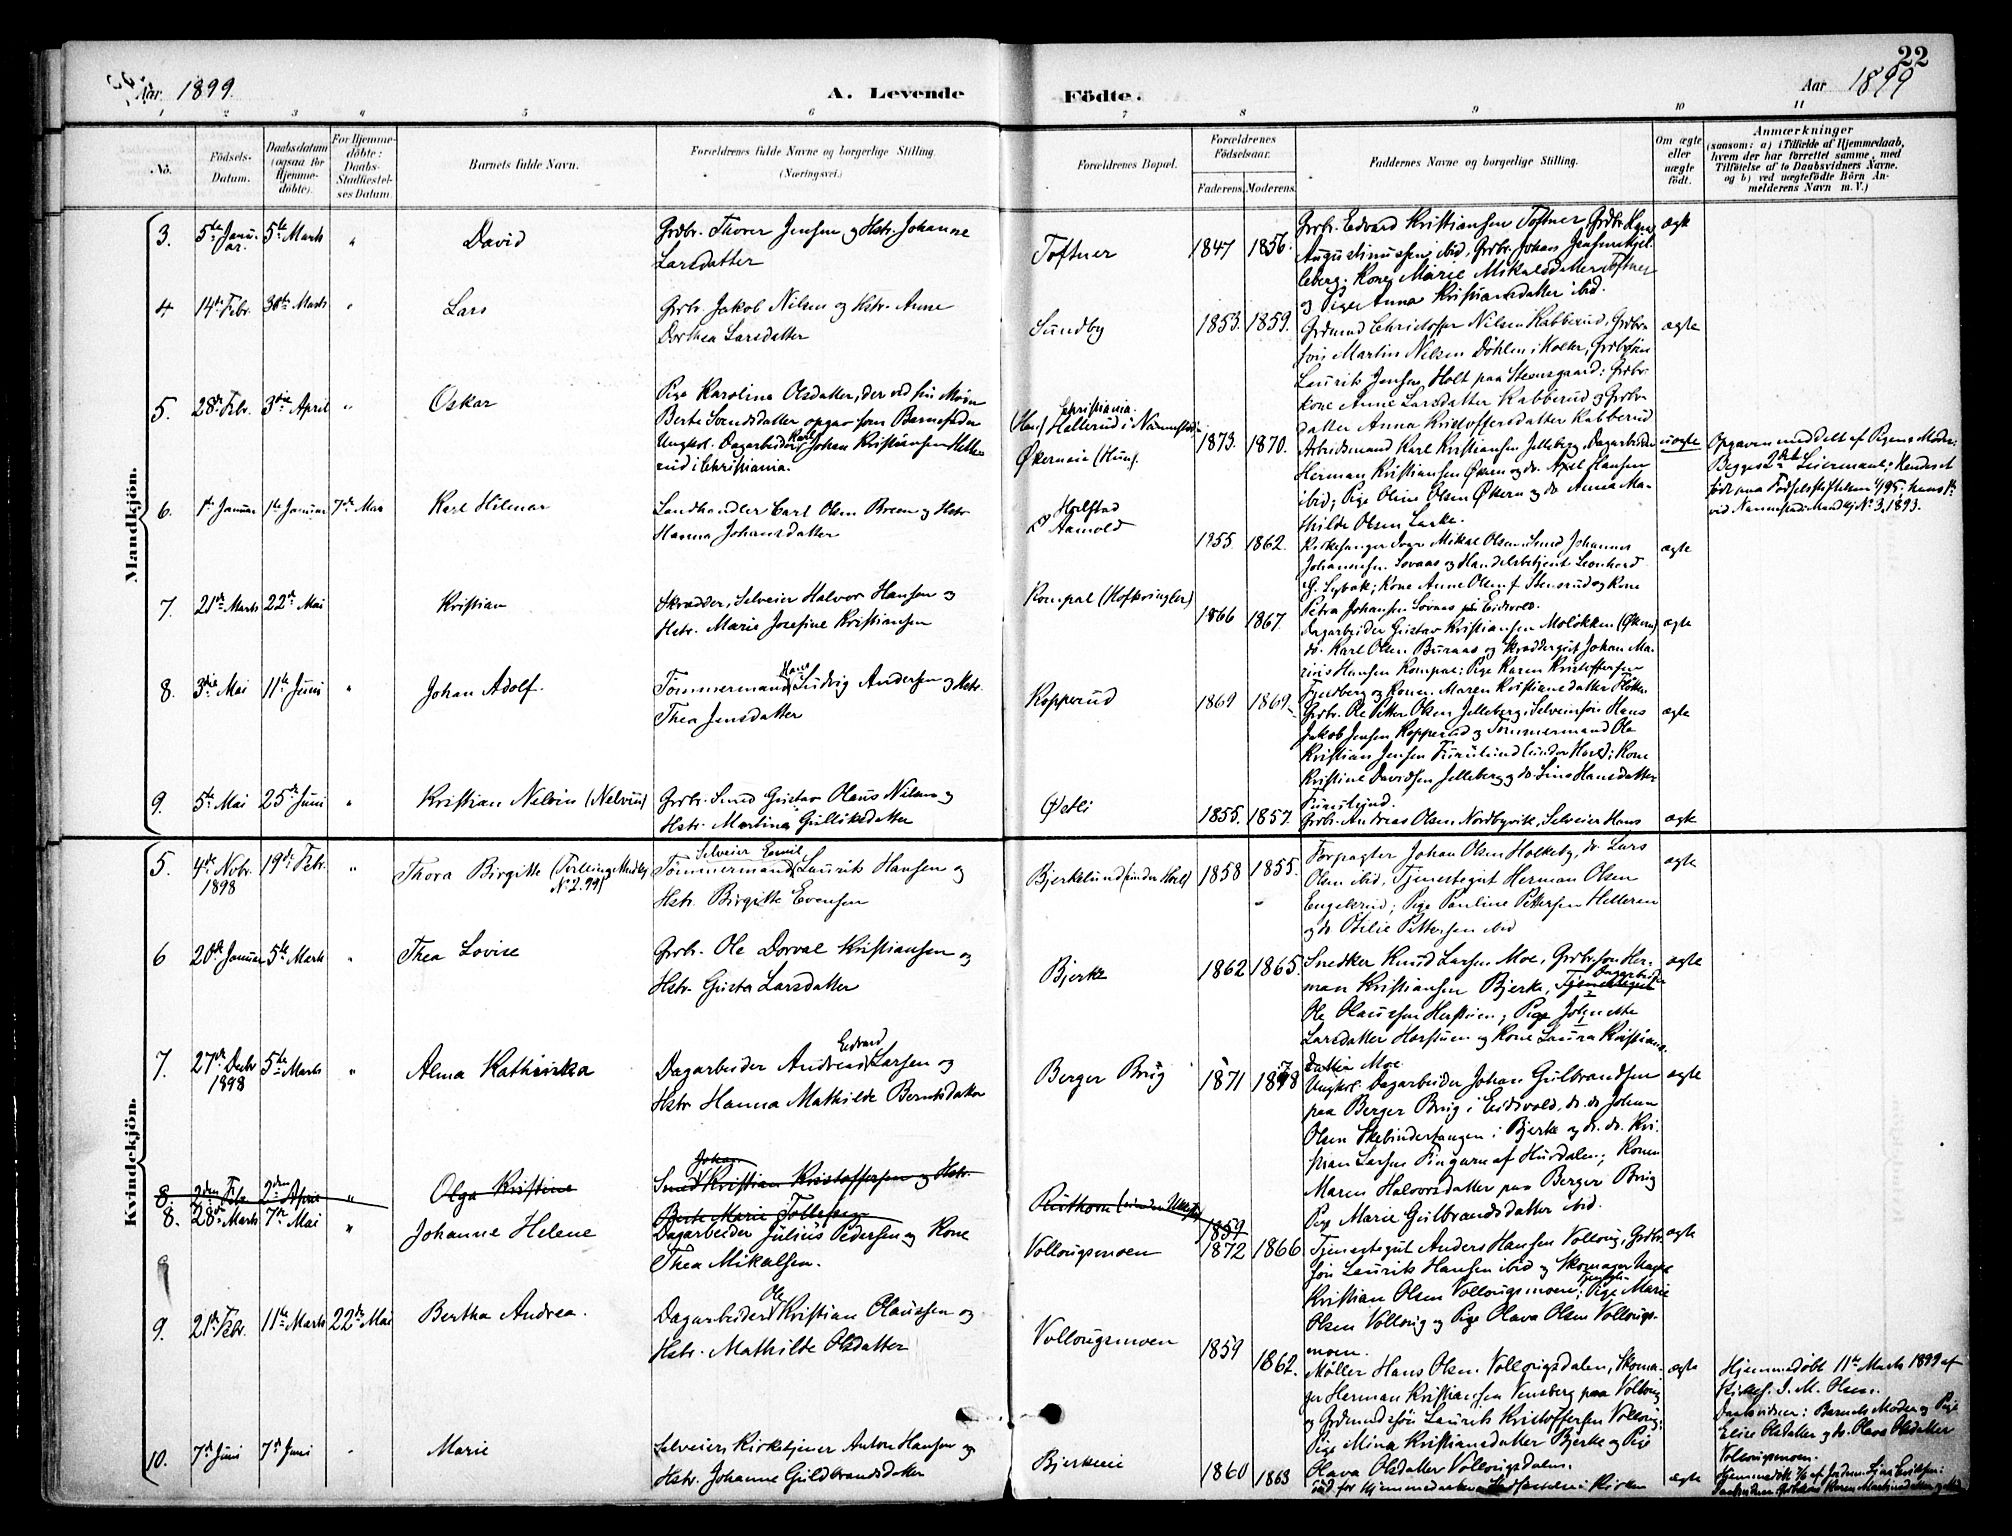 22
Aar 1899.
A. Levende
Födte.
Aar 1899
1 2 3 4 5 6 7 8 9 10 11
No.
Födsels-Datum.
Daabsdatum (ogsaa for Hjemme-döbte).
For Hjemme-döbte: Daabs-Stadfæstel-ses Datum.
Barnets fulde Navn.
Forældrenes fulde Navne og borgerlige Stilling. (Næringsvei.)
Forældrenes Bopæl.
Forældrenes Födselsaar.
Faderens. Moderens.
Faddernes Navne og borgerlige Stilling.
Om ægte eller uægte födt.
Anmærkninger
(saasom: a) i Tilfælde af Hjemmedaab,
hvem der har forrettet samme, med
Tilföielse af to Daabsvidners Navne.
og b) ved uægtefödte Börn An-
melderens Navn m. V.)
Mandkjön.
3. 5te Janu-ar. 5te Marts " David
Grdbr. Thorer Jensen og Hstr. Johanne
Larsdatter
Toftner 1847 1856.
Grbr. Edvard Kristiansen Toftner, Grdbr.
Augustinussen ibid, Grdbr. Johans Jensen Hjel-
leberg; Kone Marie Mikalsdatter Toftner
og Pige Anna Kristiansdatter ibid.
ægte
4 14de Febr. 30te Marts " Lars
Grbr. Jakob Nilsen og Hstr. Anne
Dorthea Larsdatter
Sundby 1853. 1859.
Grdmand Christoffer Nilsen Kabberud, Grdbr.
søn Martin Nilsen Döhlen i Holter, Grdbrsøn
Laurits Jensen Holt paa Steensgaard; Grdbr.
kone Anne Larsdatter Kabberud og Grdbr.
datter Anna Kristoffersdatter Kabberud
ægte
5. 28de Febr. 3die April " Oskar
Pige Karoline Olsdatter, der ved sin Moder
Berte Svendsdatter opgav som Barnefader
Ungkal. Dagarbeider Karl Johan Kristiansen Helle-
rud i Christiania.
(Han) Christiania Hellerud i Nannestad
Økerneie (Hun).
1873. 1870.
Arbeidsmand Karl Kristiansen Jelleberg, Dagarbeider
Herman Kristiansen Økern og do. Axel Hansen
ibid; Pige Oline Olsen Økern og do Anna Ma-
thilde Olsen Laake.
uægte
Opgaven meddelt af Pigens Moder.
Begges 2det Leiermaal; Hendes et
født
ved Nannestad Mandkj No 3, 1893.
6. 1ste Januar 1ste Januar 7de Mai Karl Hilmar
Landhandler Carl Olsen Breen og Hstr
Hanna Johansdatter
Holstad
p. Aamold
1855. 1862.
Kirkesanger Inge Mikal Olsen, Smed Johannes
Johannesen Sovaas og Handelsbetjent Leonhard
G. Lybak; Kone Anne Olsen f. Stensrud og Kone
Petra Johansen Sovaas paa Eidsvold.
ægte
7. 21de Marts 22de Mai Kristian
Skrædder, Selveier Halvor Hansen og
Hstr. Marie Josefine Kristiansen
Kompal (Hofkvingler) 1866 1867
Dagarbeider Gustav Kristiansen Molökken (Økern)
do. Karl Olsen Buraas og Skreddergut Johan Ma-
rius Hansen Kompal; Pige Karen Kristoffersen
Tyusberg og Konen Maren Kristiansdatter
ægte
8. 3die Mai 11te Juni " Johan Adolf.
Tømmermand Hans Ludvig Andersen og Hstr.
Thea Jensdatter
Kopperud 1869 1869
Grbr. Ole Petter Olsen Jelleberg, Selveiersøn Hans
Jakob Jensen Kopperud og Tømmermand Ole
Kristian Jensen Furulund (under Hoel); Kone
Kristine Davidsen Jelleberg og do. Lina Hansdatter
Furulund.
ægte
9. 5te Mai 25de Juni " Kristian Nelvin (Nelvin)
Grbr. Smed Gustav Olaus Nilsen og
Hstr. Martina Gulliksdatter
Østli 1855. 1857.
Grbr. Andreas Olsen Nordbyvik, Selveier Hans
ægte
Kvindekjön.
5. 4de Nobr. 1898 19de Febr. " Thora Birgitte (Tvilling No 2. 99)
Selveier Emil
Tømmermand Laurits Hansen og
Hstr. Birgitte Evensen
Bjerkelund (under Hoel) 1858 1855.
Forpagter Johan Olsen Holkeby, do. Lars
Olsen ibid, Tjenestegut Herman Olsen
Engelsrud; Pige Pauline Pettersen Helleren
og do Otilie Pettersen ibid
ægte
6 20de Januar 5te Marts " Thea Lovise
Grbr. Ole Dorval Kristiansen og
Hstr. Gusta Larsdatter
Bjerke 1862 1865.
Snedker Knud Larsen Moe, Grdbr. søn Her-
man Kristiansen Bjerke, Tjenestegut Dagarbeider
Ole Olaussen Herstuen; Pige Johnette
Larsdatter Horstuen og Kone Laura Kristians-
datter Moe.
ægte
7. 27de Decbr 1898 5te Marts " Alma Kathinka
Dagarbeider Andreas Edvard Larsen og
Hstr Hanna Mathilde Berntsdatter
Berger Brug 1871 1878
Ungkal. Dagarbeider Johan Gulbrandsen
paa Berger Brug i Eidsvold, do. do Johan
Olsen Skebindertangen i Bjerke og do. do. Kri-
stian Larsen Tingarn af Hurdalen; Konen
Maren Halvorsdatter paa Berger Brug
Pige Marie Gulbrandsdatter ibid.
ægte
8. 2den Febr 2den April " Olga Kristine
Smed Johan Kristian Kristoffersen og Hstr.
Berte Marie Tollefsen
1859
8. 28de Marts 7de Mai " Johanne Helene
Dagarbeider Julius Pedersen og Kone
Thea Mikalsen.
Vollougsmoen 1872 1866
Tjenestegut Anders Hansen Vollaug, Grdbr.
søn Laurits Hansen ibid og Skomager Ungkl
Kristian Olsen Vollougsmoen; Pige Marie
Olsen Volloug og Pige Olava Olsen Vollougs-
moen.
ægte
9
9. 21de Febr. 11te Marts 22de Mai Bertha Andrea.
Dagarbeider Ole Kristian Olaussen og
Hstr. Mathilde Olsdatter
Vollougsmoen 1859 1862.
Møller Hans Olsen Vollougsdalen, Skoma-
ger Herman Kristiansen Vensberg paa Volloug
og Grdmandssøn Laurits Kristoffersen Volloug;
Pige Mina Kristiansdatter Bjerke og Pige
Olava Olsdatter Vollougsdalen.
ægte
Hjemmedøbt 11te Marts 1899 af
Kirkes. I. M. Olsen.
Daabsvidner: Barnets Moder og Pige
Elise Olsdatter og do. Olava Olsdatter
Vollougsmoen.
10. 7de Juni 7de Juni " Marie
Selveier, Kirketjener Anton Hansen og
Hstr. Johanne Guldbrandsdatter
Bjerkeeie 1860 1863
ægte